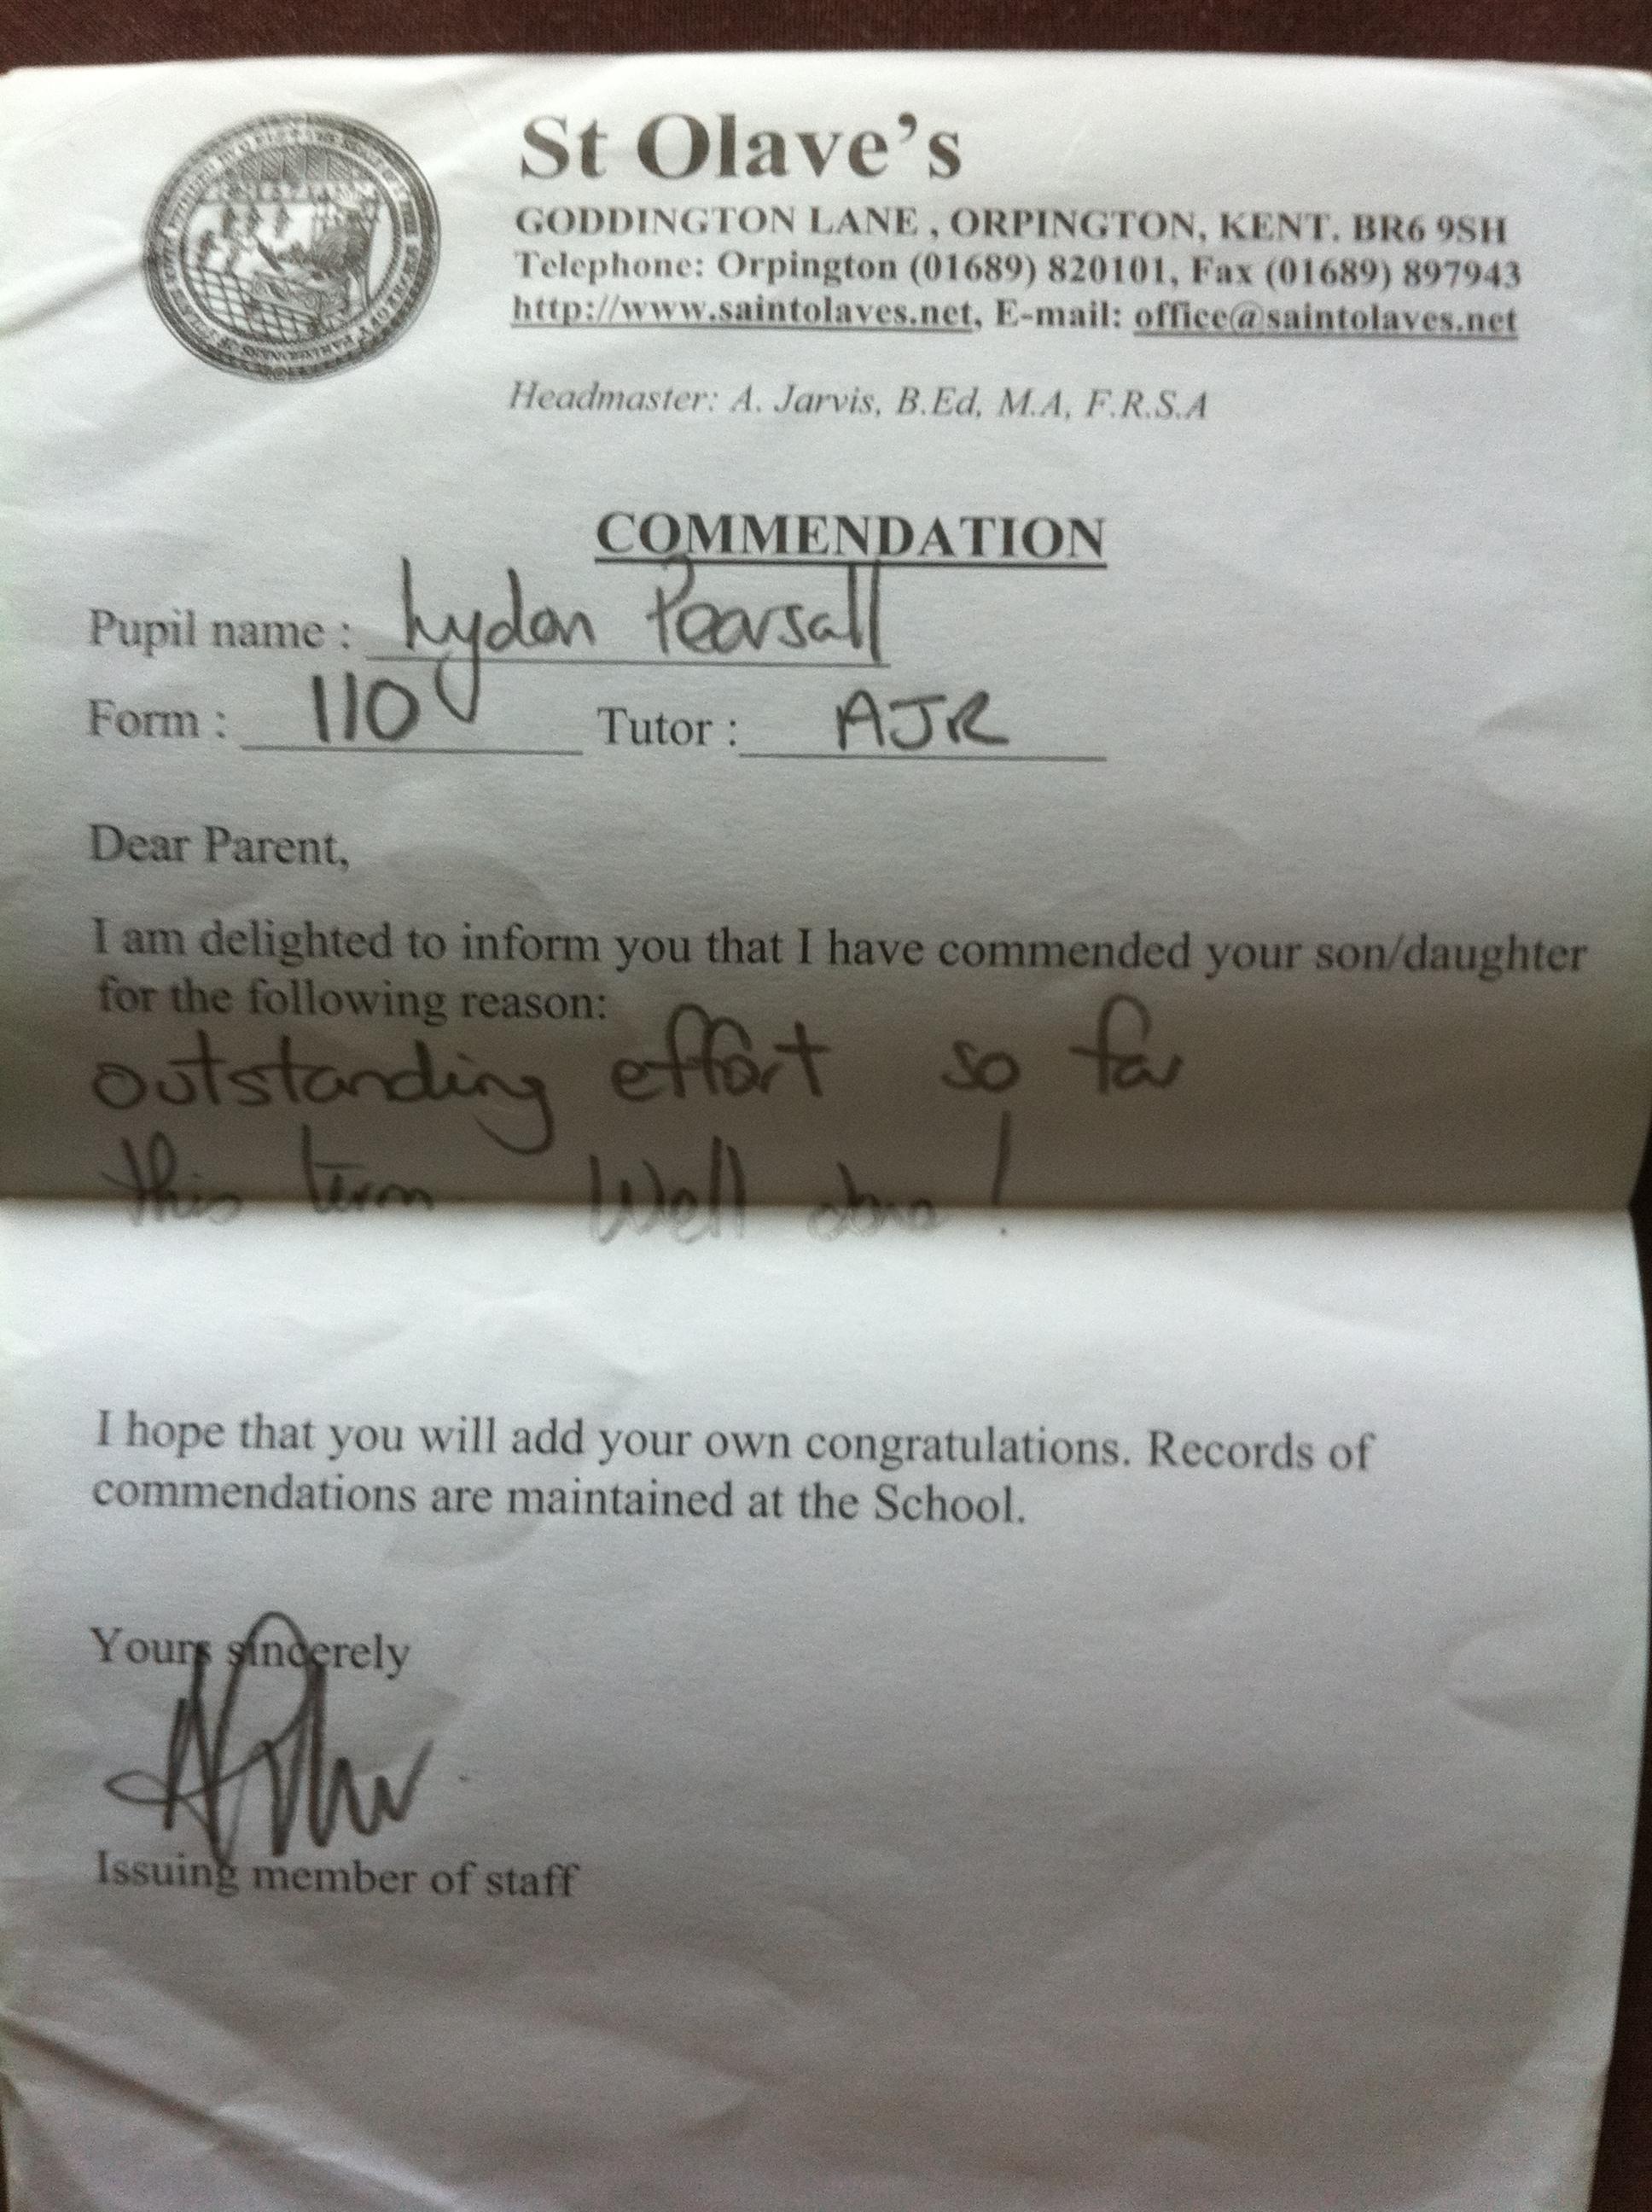 St Olave's
GODDINGTON LANE , ORPINGTON, KENT. BR6 9SH
Telephone: Orpington (01689) 820101, Fax (01689) 897943
http://www.saintolaves.net, E-mail: office@saintolaves.net
Headmaster: A. Jarvis, B.Ed, M.A, F.R.S.A
COMMENDATION
Pupil name : Lydon Pearsall
Form : 110 Tutor : AJR
Dear Parent,
I am delighted to inform you that I have commended your son/daughter
for the following reason:
outstanding effort so far
this term Well done!
I hope that you will add your own congratulations. Records of
commendations are maintained at the School.
Yours sincerely
Issuing member of staff